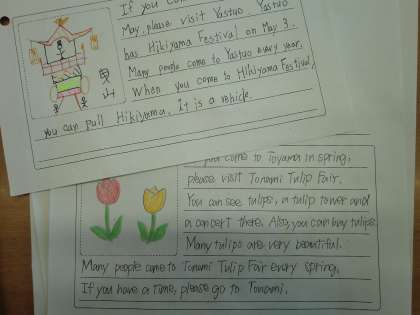 If you
May, please visit Yastuo. Yastuo
has Hikiyama Festival on May 3.
Many people come to Yastuo every year.
When you come to Hikiyama Festival,
you can pull Hikiyama. It is a vehicle.
曳山
you come to Toyama in spring,
please visit Tonami Tulip Fair.
You can see tulips, a tulip tower and
a concert there. Also, you can buy tulips.
Many tulips are very beautiful.
Many people come to Tonami Tulip Fair every spring.
If you have a time, please go to Tonami.